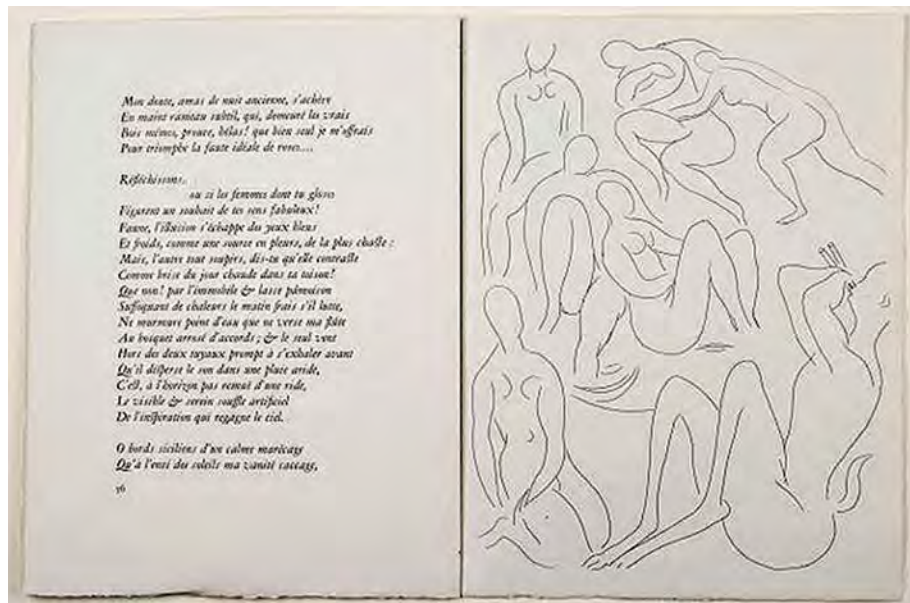 Mon doute, amas de nuit ancienne, s'achève
En maint rameau subtil, qui, demeuré les vrais
Bois mêmes, prouve, hélas! que bien seul je m'offrais
Pour triomphe la faute idéale de roses....
Réfléchissons..
ou si les femmes dont tu gloses
Figurent un souhait de tes sens fabuleux!
Faune, l'illusion s'échappe des yeux bleus
Et froids, comme une source en pleurs, de la plus chaste:
Mais, l'autre tout soupirs, dis-tu qu'elle contraste
Comme brise du jour chaude dans ta toison!
Que non! par l'immobile & lasse pâmoison
Suffoquant de chaleurs le matin frais s'il lutte,
Ne murmure point d'eau que ne verse ma flûte
Au bosquet arrosé d'accords; & le seul vent
Hors des deux tuyaux prompt à s'exhaler avant
Qu'il disperse le son dans une pluie aride,
C'est, à l'horizon pas remué d'une ride,
Le visible & serein souffle artificiel
De l'inspiration qui regagne le ciel.
O bords siciliens d'un calme marécage
Qu'à l'envi des soleils ma vanité saccage,
76